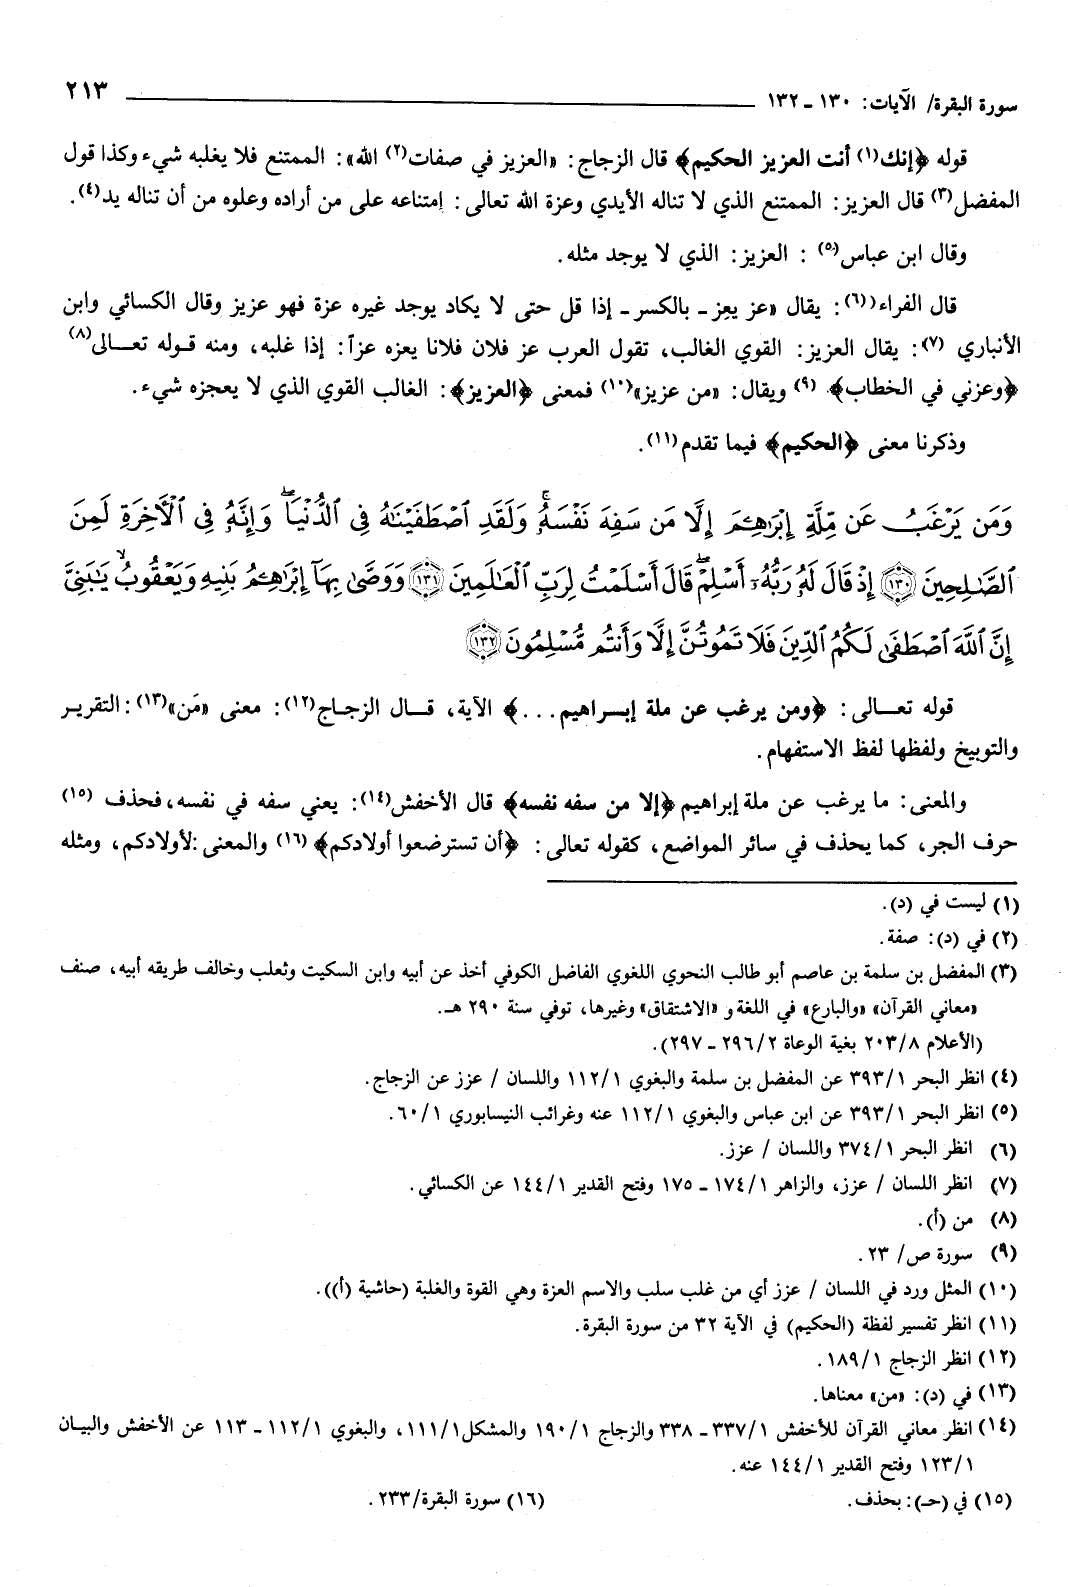 سورة البقرة/ الآيات: ١٣٠ ـ ١٣٢ ٢١٣
قوله ﴿إنك(١) أنت العزيز الحكيم﴾ قال الزجاج: «العزيز في صفات(٢) الله»: الممتنع فلا يغلبه شيء وكذا قول
المفضل(٣) قال العزيز: الممتنع الذي لا تناله الأيدي وعزة الله تعالى: إمتناعه على من أراده وعلوه من أن تناله يد(٤).
وقال ابن عباس(٥) : العزيز: الذي لا يوجد مثله.
قال الفراء((٦): يقال «عز يعِز ـ بالكسر ـ إذا قل حتى لا يكاد يوجد غيره عزة فهو عزيز وقال الكسائي وابن
الأنباري (٧): يقال العزيز: القوي الغالب، تقول العرب عز فلان فلانا يعزه عزاً: إذا غلبه، ومنه قوله تعالى(٨)
﴿وعزني في الخطاب﴾. (٩) ويقال: «من عزيز»(١٠) فمعنى ﴿العزيز﴾: الغالب القوي الذي لا يعجزه شيء.
وذكرنا معنى ﴿الحكيم﴾ فيما تقدم(١١).
وَمَن يَرْغَبُ عَن مِّلَّةِ إِبْرَٰهِـۧمَ إِلَّا مَن سَفِهَ نَفْسَهُۥۚ وَلَقَدِ ٱصْطَفَيْنَٰهُ فِى ٱلدُّنْيَاۖ وَإِنَّهُۥ فِى ٱلْءَاخِرَةِ لَمِنَ
ٱلصَّٰلِحِينَ ﴿١٣٠﴾ إِذْ قَالَ لَهُۥ رَبُّهُۥٓ أَسْلِمْۖ قَالَ أَسْلَمْتُ لِرَبِّ ٱلْعَٰلَمِينَ ﴿١٣١﴾ وَوَصَّىٰ بِهَآ إِبْرَٰهِـۧمُ بَنِيهِ وَيَعْقُوبُۙ يَٰبَنِىَّ
إِنَّ ٱللَّهَ ٱصْطَفَىٰ لَكُمُ ٱلدِّينَ فَلَا تَمُوتُنَّ إِلَّا وَأَنتُم مُّسْلِمُونَ ﴿١٣٢﴾
قوله تعالى: ﴿ومن يرغب عن ملة إبراهيم...﴾ الآية، قال الزجاج(١٢): معنى «مَن»(١٣): التقرير
والتوبيخ ولفظها لفظ الاستفهام.
والمعنى: ما يرغب عن ملة إبراهيم ﴿إلا من سفه نفسه﴾ قال الأخفش(١٤): يعني سفه في نفسه، فحذف (١٥)
حرف الجر، كما يحذف في سائر المواضع، كقوله تعالى: ﴿أن تسترضعوا أولادكم﴾ (١٦) والمعنى: لأولادكم، ومثله
(١) ليست في (د).
(٢) في (د): صفة.
(٣) المفضل بن سلمة بن عاصم أبو طالب النحوي اللغوي الفاضل الكوفي أخذ عن أبيه وابن السكيت وثعلب وخالف طريقه أبيه، صنف
«معاني القرآن» «والبارع» في اللغة و «الاشتقاق» وغيرها، توفي سنة ٢٩٠ هـ.
(الأعلام ٢٠٣/٨ بغية الوعاة ٢٩٦/٢ ـ ٢٩٧).
(٤) انظر البحر ٣٩٣/١ عن المفضل بن سلمة والبغوي ١١٢/١ واللسان / عزز عن الزجاج.
(٥) انظر البحر ٣٩٣/١ عن ابن عباس والبغوي ١١٢/١ عنه وغرائب النيسابوري ٦٠/١.
(٦) انظر البحر ٣٧٤/١ واللسان / عزز.
(٧) انظر اللسان / عزز، والزاهر ١٧٤/١ ـ ١٧٥ وفتح القدير ١٤٤/١ عن الكسائي.
(٨) من (أ).
(٩) سورة ص/ ٢٣.
(١٠) المثل ورد في اللسان / عزز أي من غلب سلب والاسم العزة وهي القوة والغلبة (حاشية (أ)).
(١١) انظر تفسير لفظة (الحكيم) في الآية ٣٢ من سورة البقرة.
(١٢) انظر الزجاج ١٨٩/١.
(١٣) في (د): «من» معناها.
(١٤) انظر معاني القرآن للأخفش ٣٣٧/١ ـ ٣٣٨ والزجاج ١٩٠/١ والمشكل ١١١/١، والبغوي ١١٢/١ ـ ١١٣ عن الأخفش والبيان
١٢٣/١ وفتح القدير ١٤٤/١ عنه.
(١٥) في (حـ): بحذف. (١٦) سورة البقرة/٢٣٣.